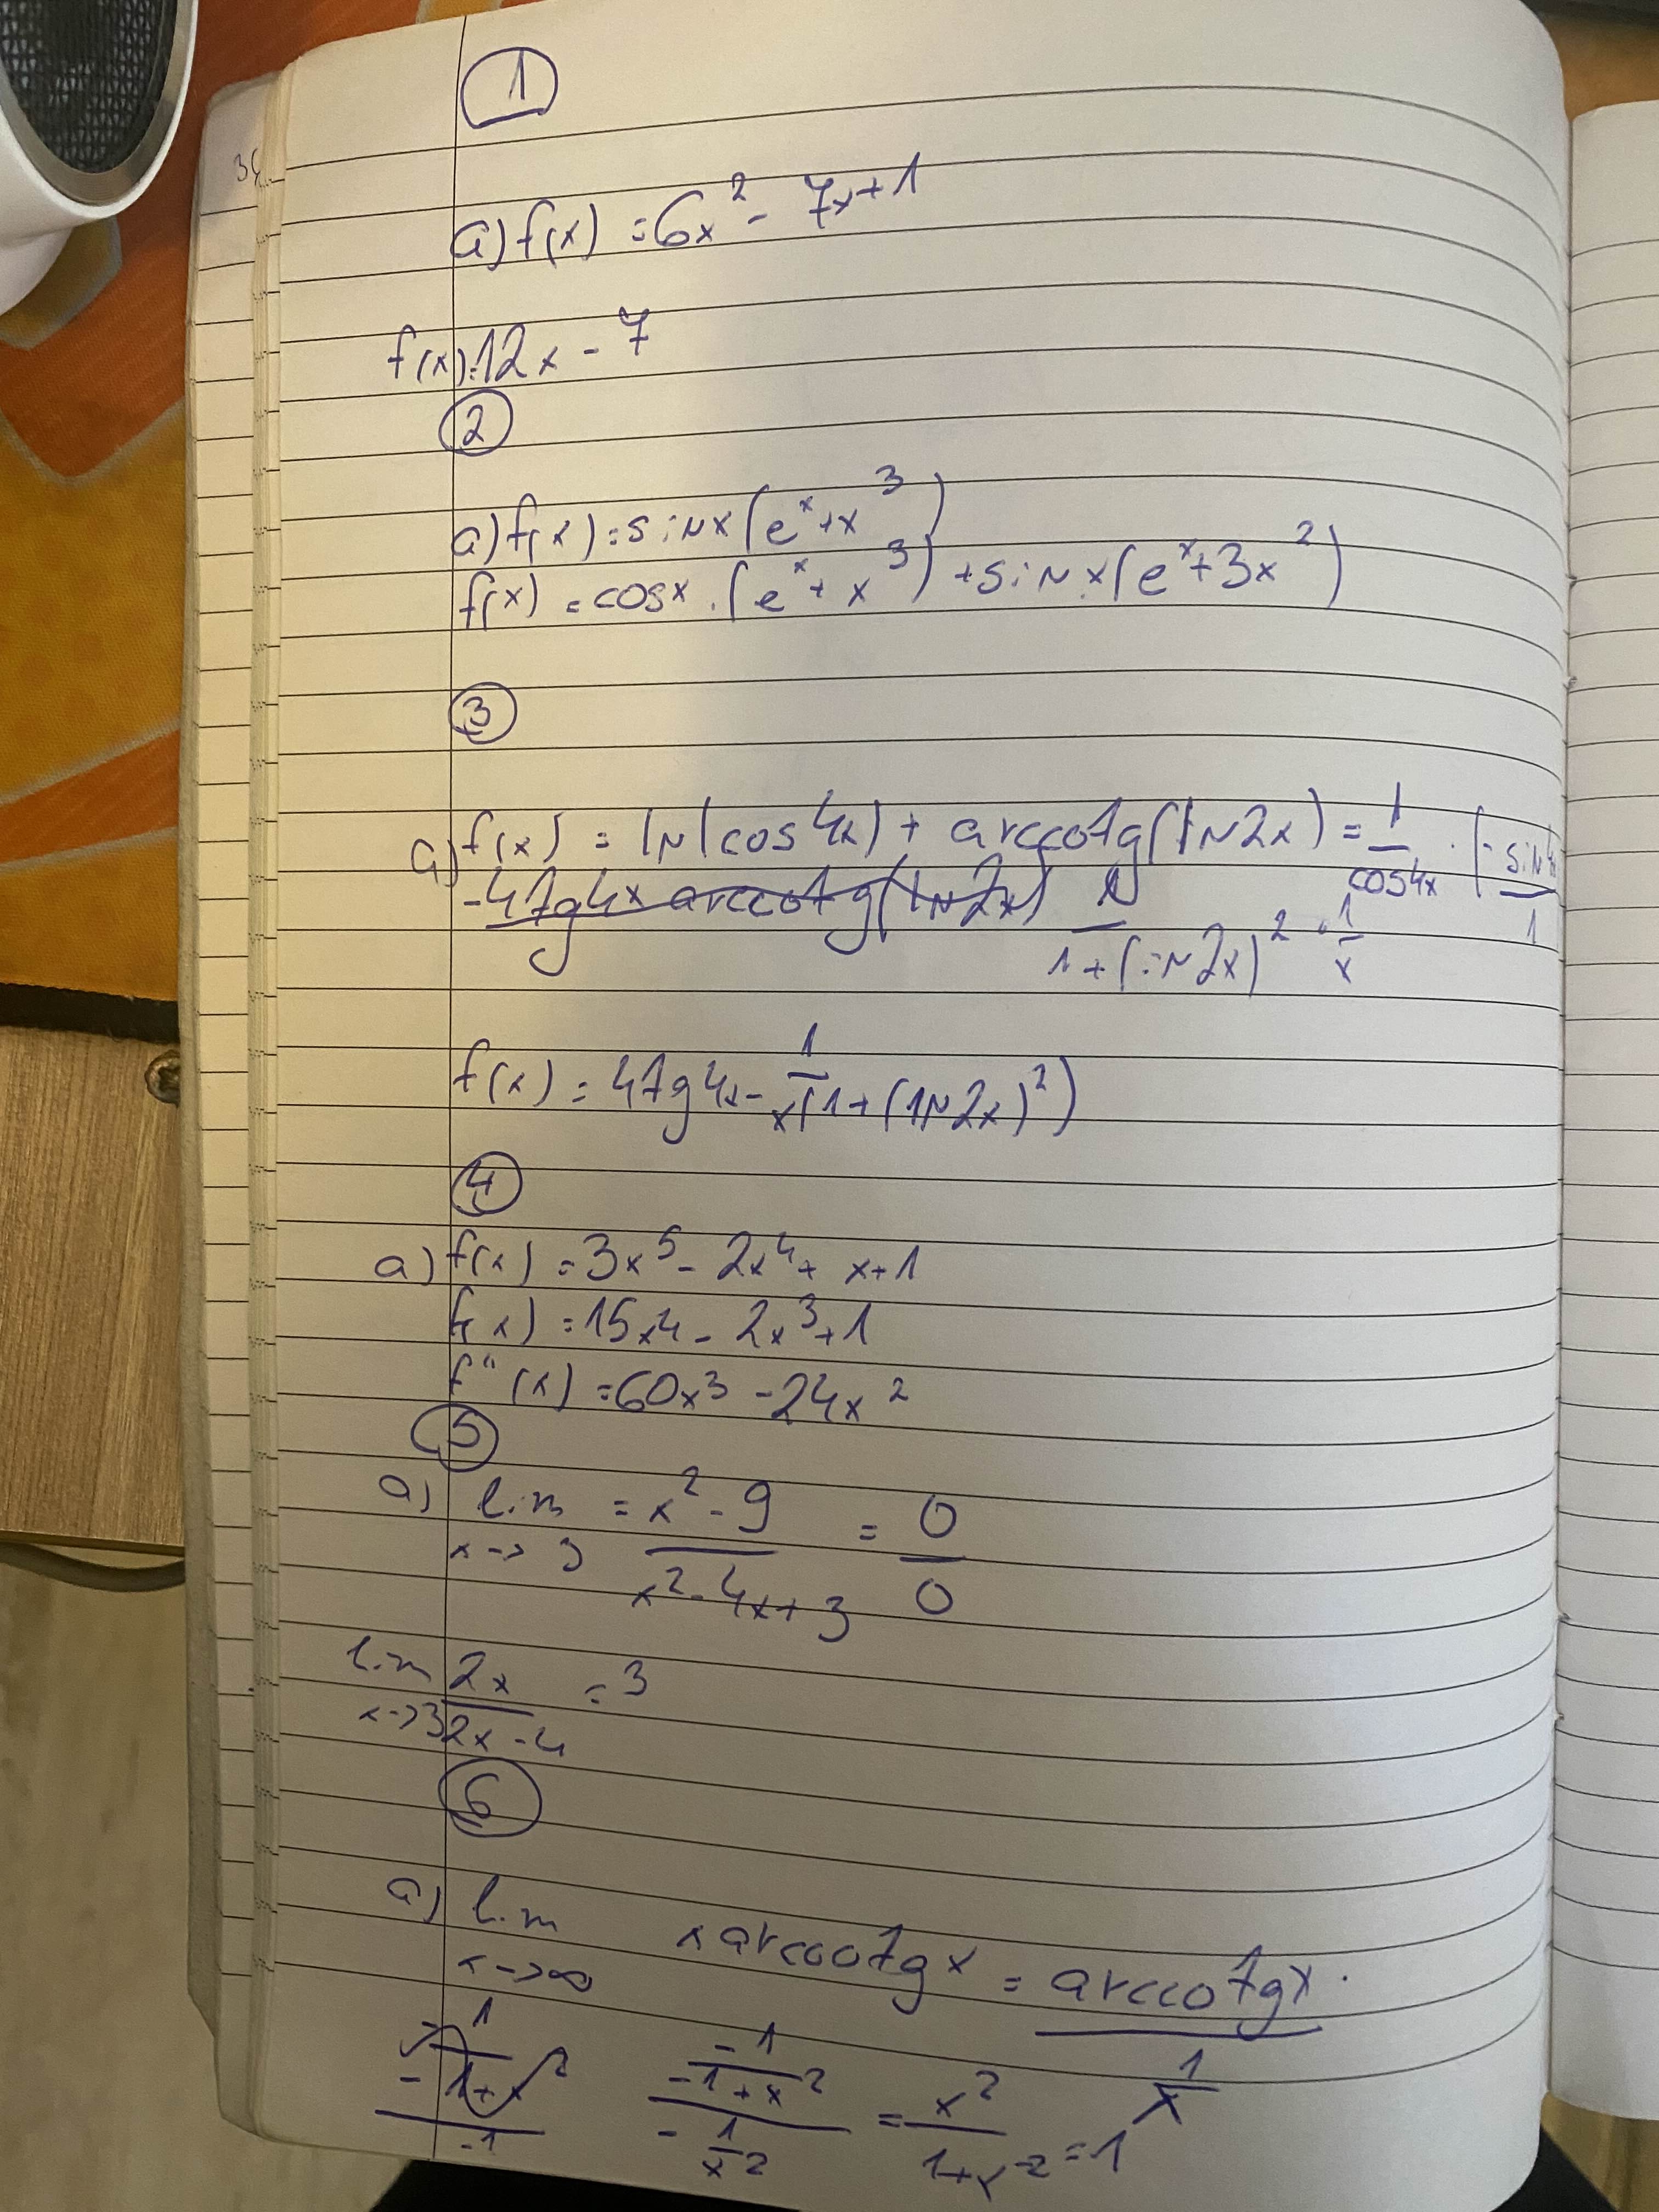 1
a) f(x) = 6x² - 7x + 1
f(x) = 12x - 7
2
a) f(x) = sinx (e^x + x³)
f(x) = cosx · (e^x + x³) + sinx (e^x + 3x²)
3
a) f(x) = ln(cos4x) + arccotg(ln2x) = 1/cos4x · (-sin4x/1
-4tg4x arccotg(ln2x) 1/(1+(ln2x)²) · 1/x
f(x) = 4tg4x - 1/x(1+(ln2x)²)
4
a) f(x) = 3x⁵ - 2x⁴ + x + 1
f(x) = 15x⁴ - 2x³ + 1
f"(x) = 60x³ - 24x²
5
a) lim x->3 = (x² - 9)/(x² - 4x + 3) = 0/0
lim x->3 2x/(2x - 4) = 3
6
a) lim x->∞ x arccotg x = arccotgx / (1/x)
- 1/(1+x²) / -1 (-1/(-1+x²)) / (-1/x²) = x²/(1+x²) = 1